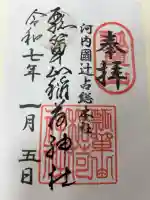 奉拝
河内國辻占総本社
瓢箪山稲荷神社
令和七年 一月五日